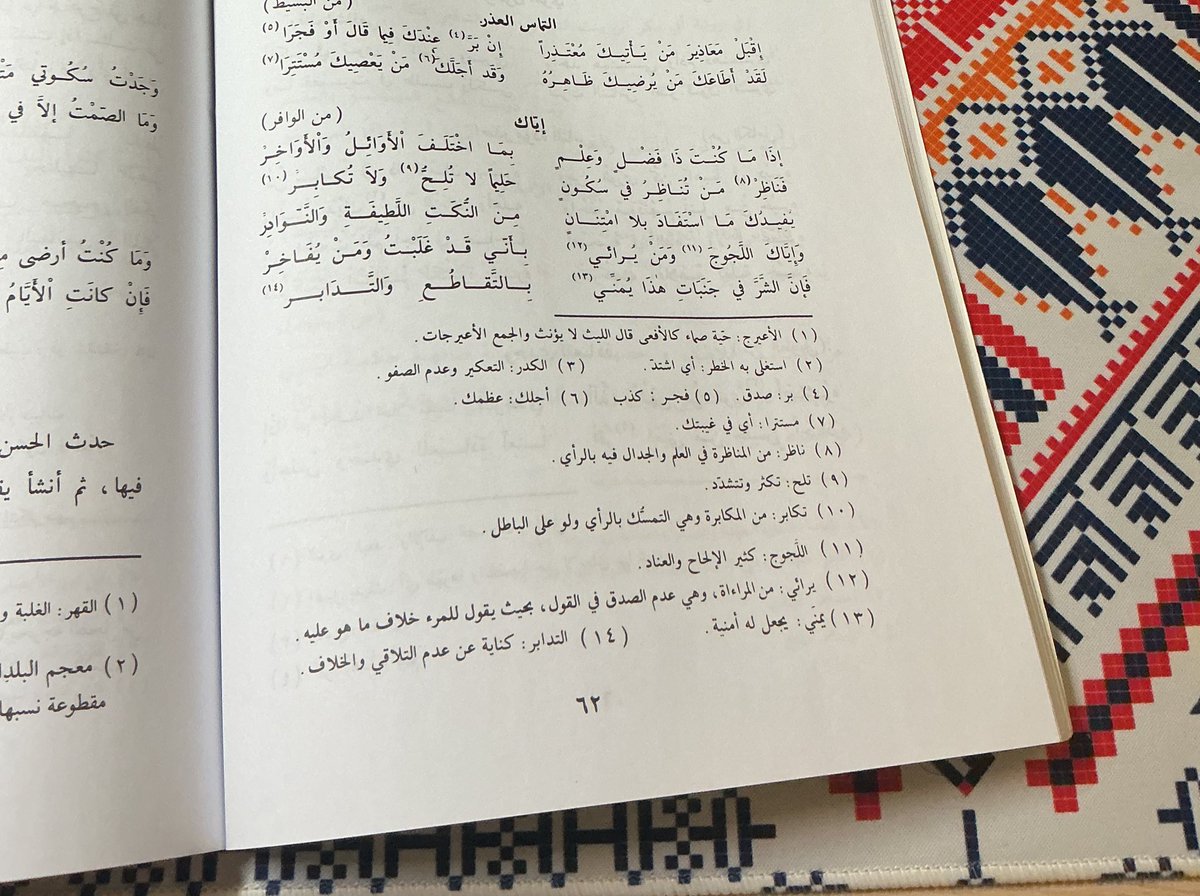 ( من البسيط )
التماس العذر
إقْبَلْ مَعَاذِيرَ مَنْ يَأتِيكَ مُعْتَذِراً إنْ بَرَّ (٤) عِنْدَكَ فِيمَا قَالَ أوْ فَجَرَا (٥)
لَقَدْ أطَاعَكَ مَنْ يُرضِيكَ ظَاهِرُهُ وَقَد أجَلَّكَ (٦) مَنْ يَعْصِيكَ مُسْتَتِرَا (٧)
إيّاك ( من الوافر )
إذَا مَا كُنْتَ ذَا فَضْلٍ وَعِلْمٍ بِمَا اخْتَلَفَ الْأوَائِلُ وَالْأوَاخِرْ
فَنَاظِرْ (٨) مَنْ تُنَاظِرُ في سُكُونٍ حَلِيماً لا تُلِحُّ (٩) وَلَا تُكَابِرْ (١٠)
يُفِيدُكَ مَا اسْتَفَادَ بلا امْتِنَانٍ مِنَ النُّكَتِ اللَّطِيفَةِ وَالنَّوَادِرْ
وَإيَّاكَ اللَّجُوجَ (١١) وَمَنْ يُرائي (١٢) بأنّي قَدْ غَلَبْتُ وَمَنْ يُفَاخِرْ
فَإنَّ الشَرَّ في جَنَبَاتِ هٰذا يُمَنِّي (١٣) بِالتَّقَاطُعِ وَالتَّدَابر (١٤)
(١) الأعيرج: حَيّة صماء كالأفعى قال الليث لا يؤنث والجمع الأعيرجات .
(٢) استغلى به الخطر: أي اشتدّ. (٣) الكدر: التعكير وعدم الصفو .
(٤) بر: صدق. (٥) فجر: كذب (٦) أجلك: عظمك .
(٧) مستترا: أي في غيبتك.
(٨) ناظر: من المناظرة في العلم والجدال فيه بالرأي .
(٩) تلح: تكثر وتتشدّد.
(١٠) تكابر: من المكابرة وهي التمسّك بالرأي ولو على الباطل .
(١١) اللَجوج: كثير الإلحاح والعناد .
(١٢) يرائي: من المراءاة، وهي عدم الصدق في القول، بحيث يقول للمرء خلاف ما هو عليه .
(١٣) يمنّي: يجعل له أمنية . (١٤) التدابر: كناية عن عدم التلاقي والخلاف .
٦٢
وَجَدْتُ سُكُوتي
وَمَا الصَمْتُ إلاَّ في
وَمَا كُنْتُ أرضى
فَإنْ كانَتِ الْأيَّامُ
حدث الحسن
فيها، ثم أنشأ
(١) القهر: الغلبة و
(٢) معجم
مقطوعة نسبها